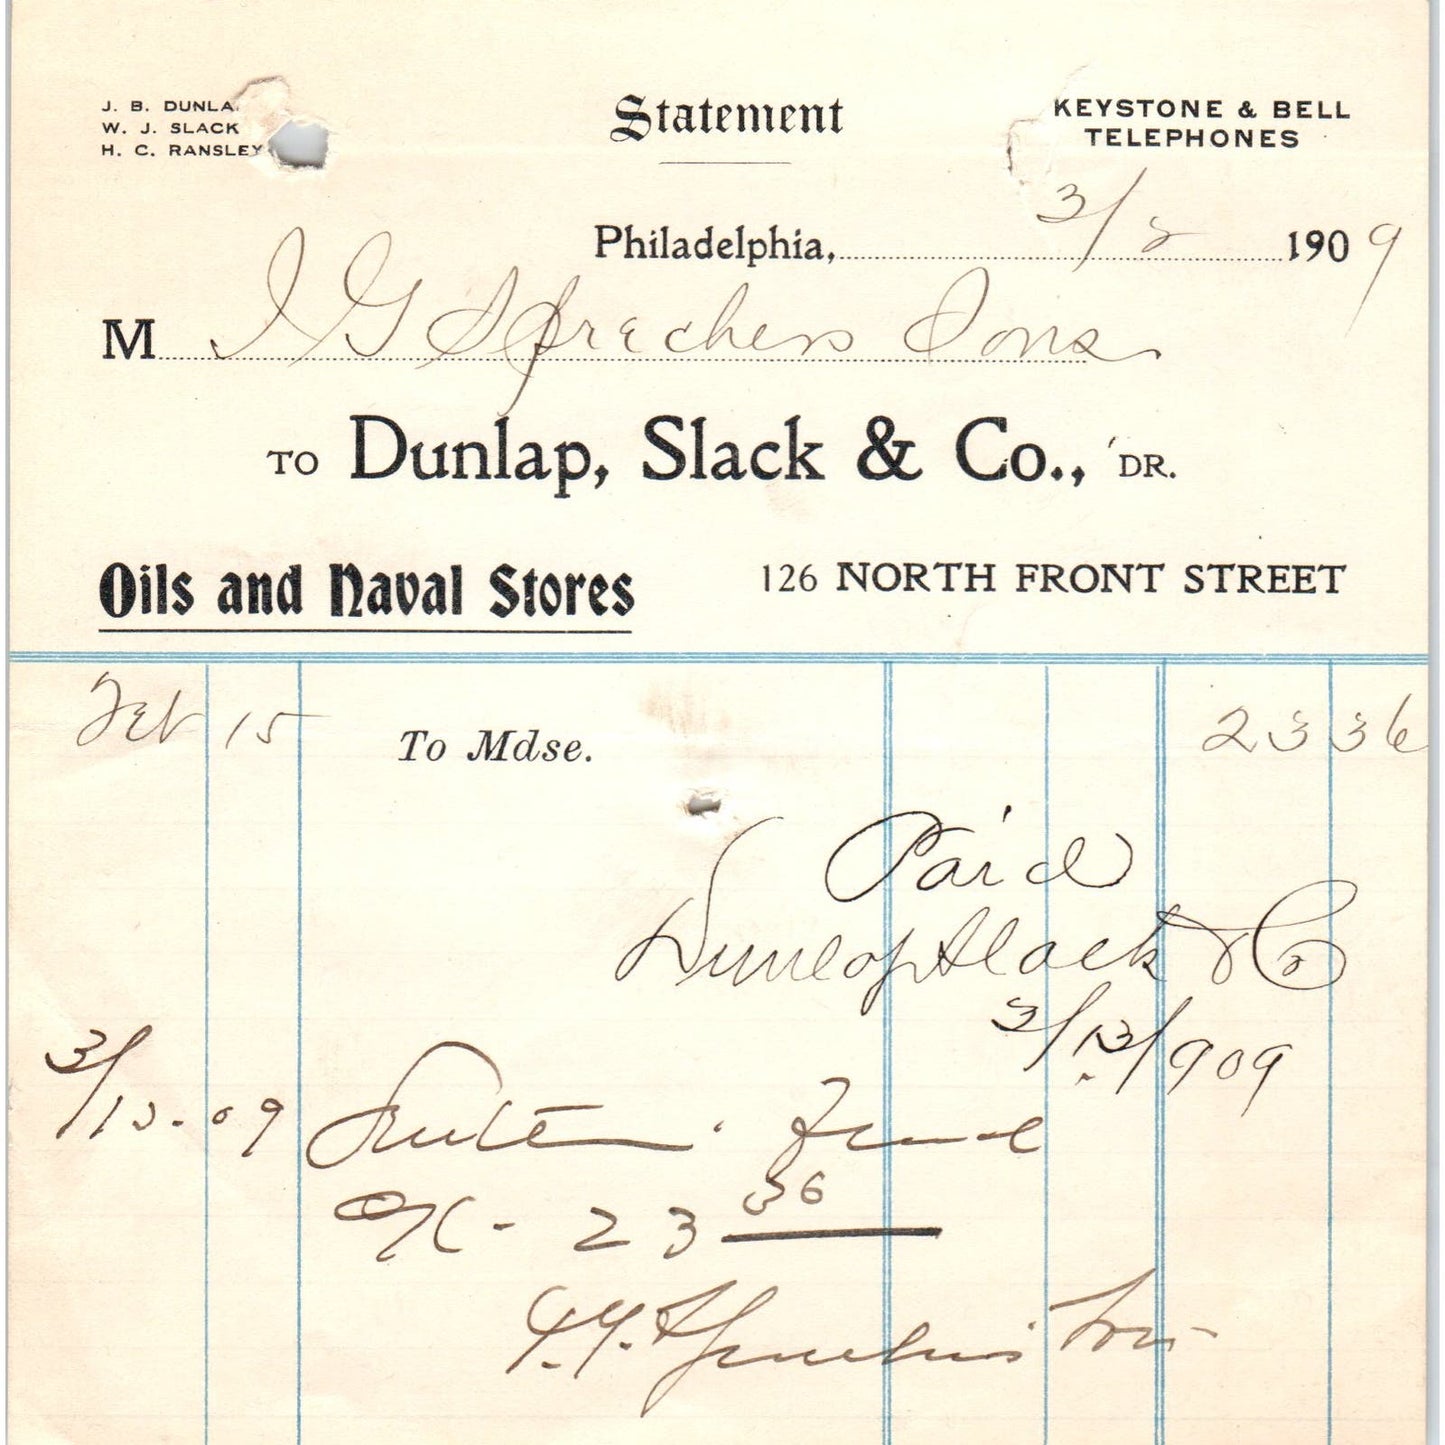 J. B. DUNLA
W. J. SLACK
H. C. RANSLEY
Statement
KEYSTONE & BELL
TELEPHONES
Philadelphia, 3/2 1909
M I G Sprechers Sons
TO Dunlap, Slack & Co., DR.
Oils and Naval Stores 126 NORTH FRONT STREET
Feb 15 To Mdse. 23 36
Paid
Dunlap Slack & Co
3/13/909
3/13-09
OK - 23 36
Sprechers Sons